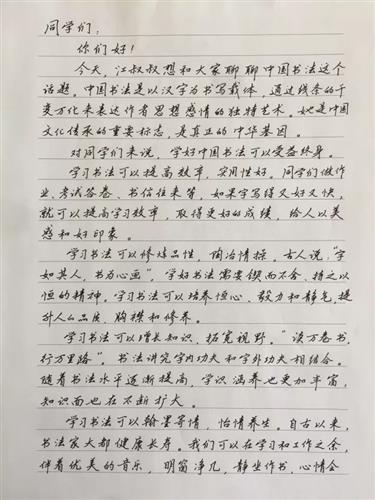 同学们：
你们好！
今天，江叔叔想和大家聊聊中国书法这个
话题。中国书法是以汉字为书写载体，通过线条的千
变万化来表达作者思想感情的独特艺术。她是中国
文化传承的重要标志，是真正的中华基因。
对同学们来说，学好中国书法可以受益终身。
学习书法可以提高效率，实用性好。同学们做作
业、考试答卷、书信往来等，如果字写得又好又快，
就可以提高学习效率，取得更好的成绩，给人以美
感和好印象。
学习书法可以修炼品性，陶冶情操。古人说："字
如其人，书为心画"，学好书法需要锲而不舍、持之以
恒的精神。学习书法可以培养恒心、毅力和静气，提
升人的品位、胸襟和修养。
学习书法可以增长知识，拓宽视野。"读万卷书，
行万里路"，书法讲究字内功夫和字外功夫相结合。
随着书法水平逐渐提高，学识涵养也更加丰富，
知识面也在不断扩大。
学习书法可以翰墨寄情，怡情养生。自古以来，
书法家大都健康长寿。我们可以在学习和工作之余，
伴着优美的音乐，明窗净几，静坐作书，心情会